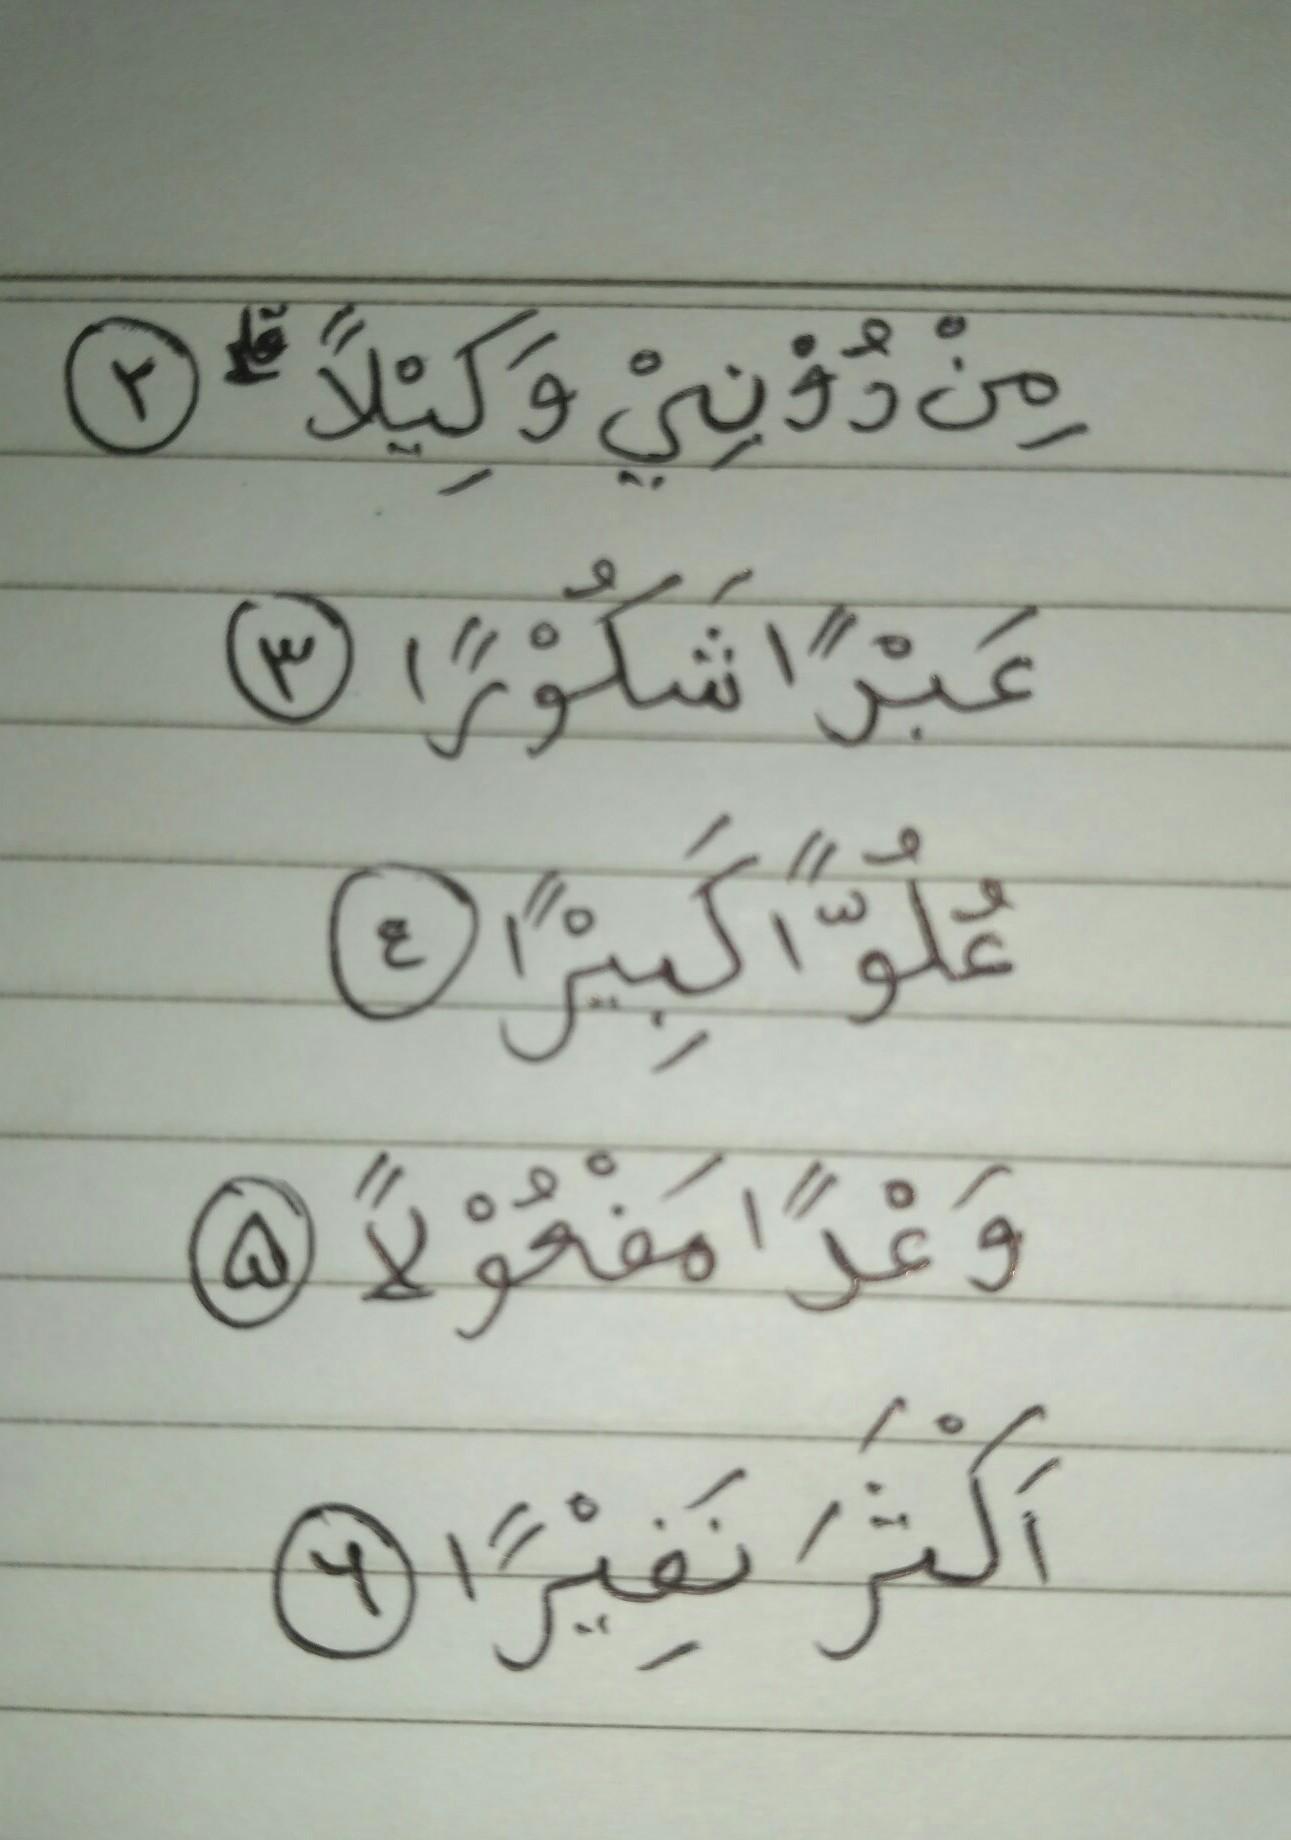 مِنْ دُوْنِيْ وَكِيْلاً ۗ ٢
عَبْدًا شَكُوْرًا ٣
عُلُوًّا كَبِيْرًا ٤
وَعْدًا مَفْعُوْلاً ۵
اَكْثَرَ نَفِيْرًا ۶